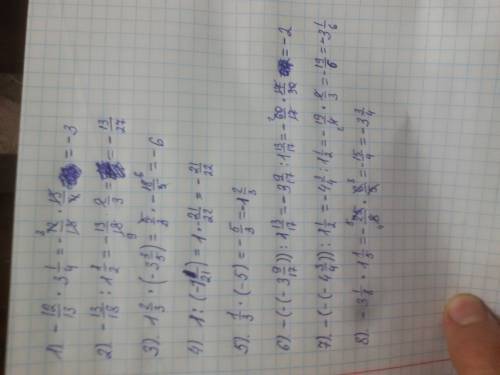 1) - 12/13 · 3 1/4 = - 12/13 · 13/4 = -3
2) - 13/18 : 1 1/2 = - 13/18 · 2/3 = - 13/27
3) 1 2/3 · (-3 3/5) = 5/3 · - 18/5 = 6
4) 1 : (-1 1/21) = 1 · - 21/22 = - 21/22
5) 1/3 · (-5) = - 5/3 = -1 2/3
6) -(-(-3 9/17)) : 1 13/17 = -3 9/17 : 1 13/17 = - 60/17 · 17/30 = -2
7) -(-(-4 3/4)) : 1 1/2 = -4 3/4 : 1 1/2 = - 19/4 · 2/3 = - 19/6 = -3 1/6
8) -3 1/8 · 1 1/5 = - 25/8 · 6/5 = - 15/4 = -3 3/4